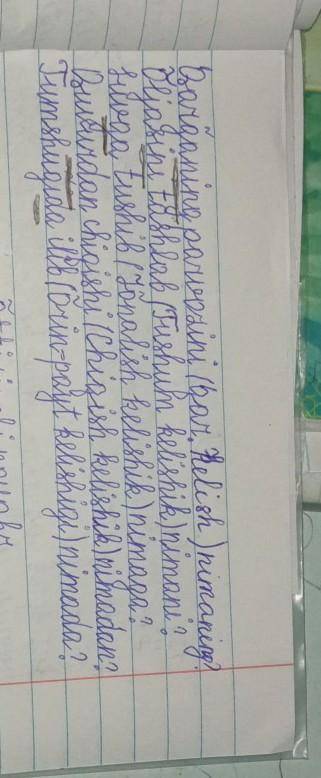 Qarg'aning parvozini (Qar. Kelish) nimaning?
O'ljasini tashlab (Tushum kelishik) nimani?
Suvga tushib (Jonalish kelishik) nimaga?
Qudurdan chiqishi (Chiqish kelishik) nimadan?
Tumshugida ilib (O'rin-payt kelishigi) nimada?